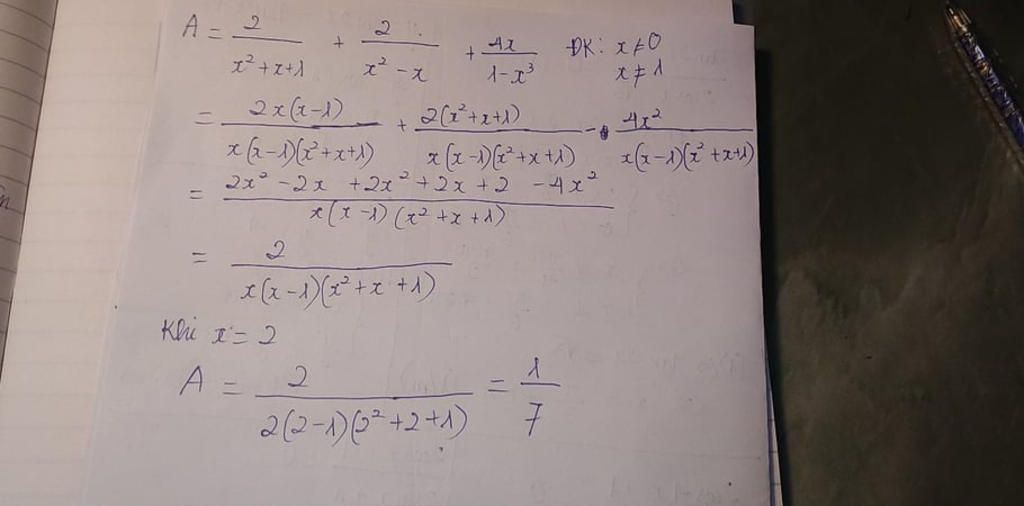 A = 2/(x²+x+1) + 2/(x²-x) + 4x/(1-x³) ĐK: x≠0
x≠1
= 2x(x-1)/(x(x-1)(x²+x+1)) + 2(x²+x+1)/(x(x-1)(x²+x+1)) - 4x²/(x(x-1)(x²+x+1))
= (2x² -2x +2x² +2x +2 -4x²)/(x(x-1)(x²+x+1))
= 2/(x(x-1)(x²+x+1))
Khi x = 2
A = 2/(2(2-1)(2²+2+1)) = 1/7